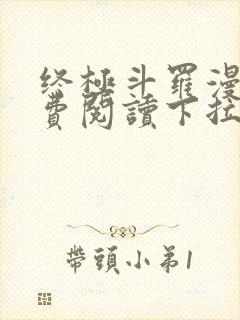 终極斗羅漫
費閱讀下拉
帶頭小弟1